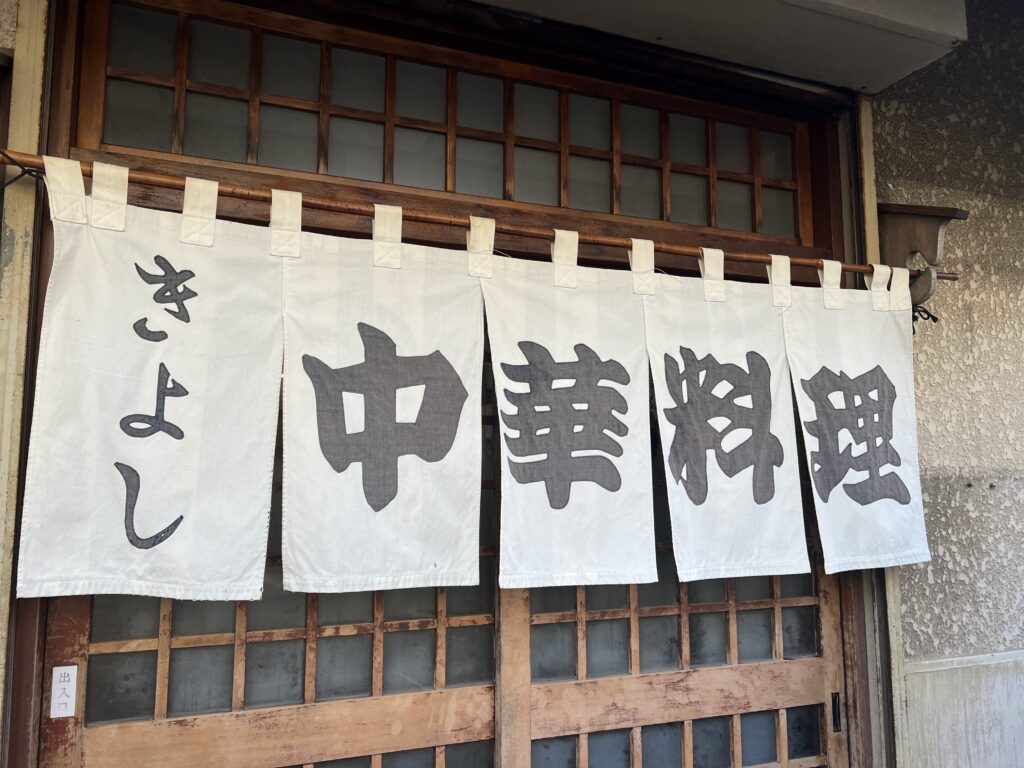 きよし
中華料理
出入口